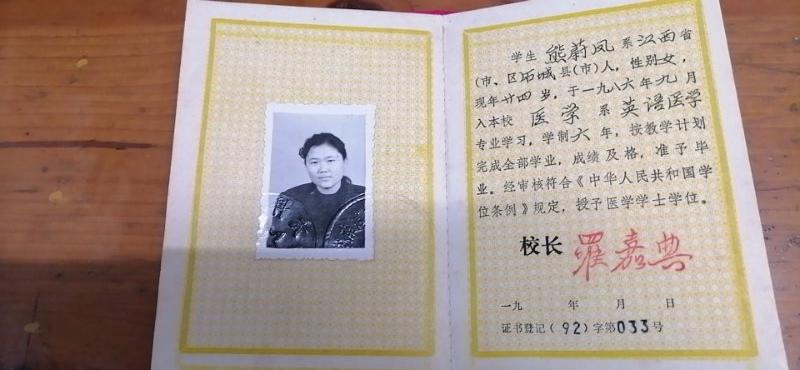 学生 熊蔚凤 系江西省
(市、区)石城县(市)人，性别女，
现年廿四岁，于一九八六年九月
入本校 医学 系 英语医学
专业学习，学制六年，按教学计划
完成全部学业，成绩及格，准予毕
业。经审核符合《中华人民共和国学
位条例》规定，授予医学学士学位。
校长 罗嘉典
一九 年 月 日
证书登记(92)字第033号